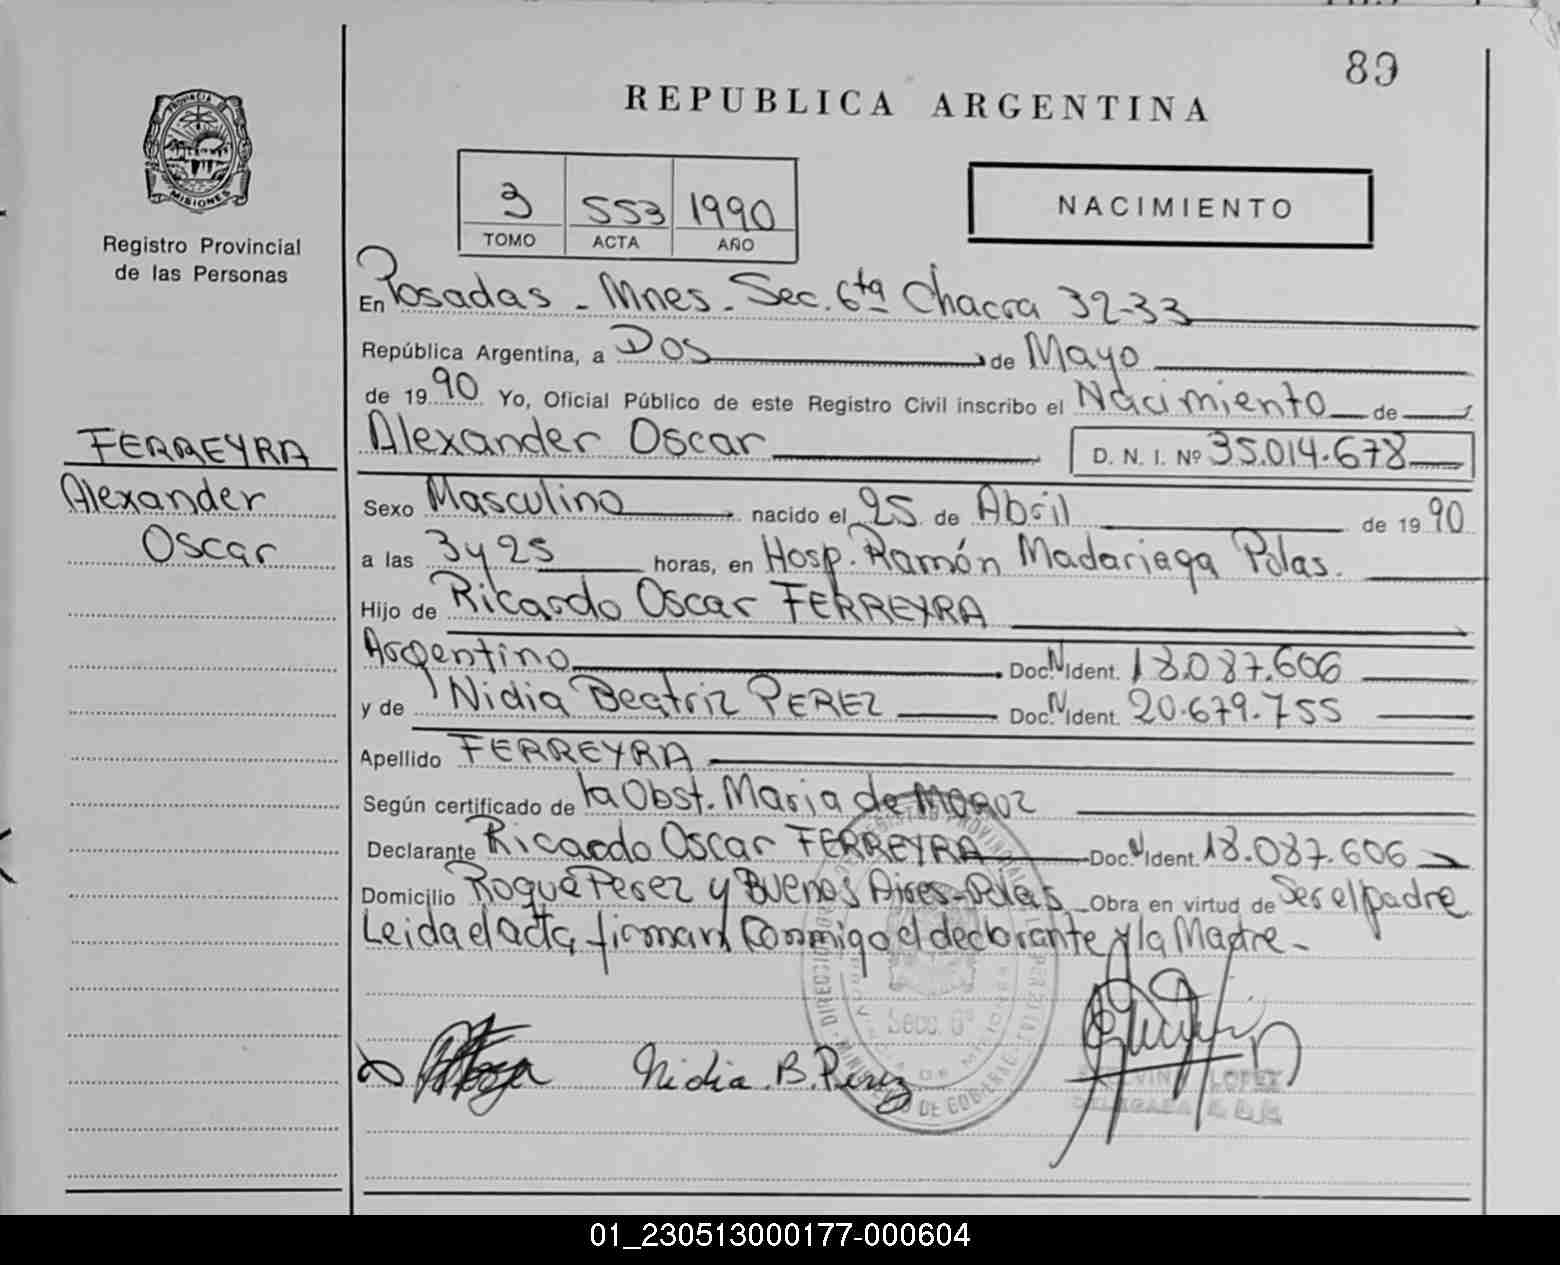 89
REPUBLICA ARGENTINA
PROVINCIA DE
MISIONES
Registro Provincial
de las Personas
3 553 1990
TOMO ACTA AÑO
NACIMIENTO
En Posadas - Mnes. Sec. 6ta Chacra 32-33
República Argentina, a Dos de Mayo
de 1990 Yo, Oficial Público de este Registro Civil inscribo el Nacimiento de
Alexander Oscar D. N. I. Nº 35.014.678
FERREYRA
Alexander
Oscar
Sexo Masculino nacido el 25 de Abril de 1990
a las 3 y 25 horas, en Hosp. Ramón Madariaga Pdas.
Hijo de Ricardo Oscar FERREYRA
Argentino Doc. N Ident. 18.087.606
y de Nidia Beatriz PEREZ Doc. N Ident. 20.679.755
Apellido FERREYRA
Según certificado de la Obst. Maria de
Declarante Ricardo Oscar FERREYRA Doc. N Ident. 18.087.606
Domicilio Roque Perez y Buenos Aires - Pdas Obra en virtud de Ser el padre
Leida el acta, firman conmigo el declarante y la Madre -
Secc. 6ª
MINISTERIO DE GOBIERNO
Nidia B. Perez
LOPEZ
DELEGADA
01_230513000177-000604